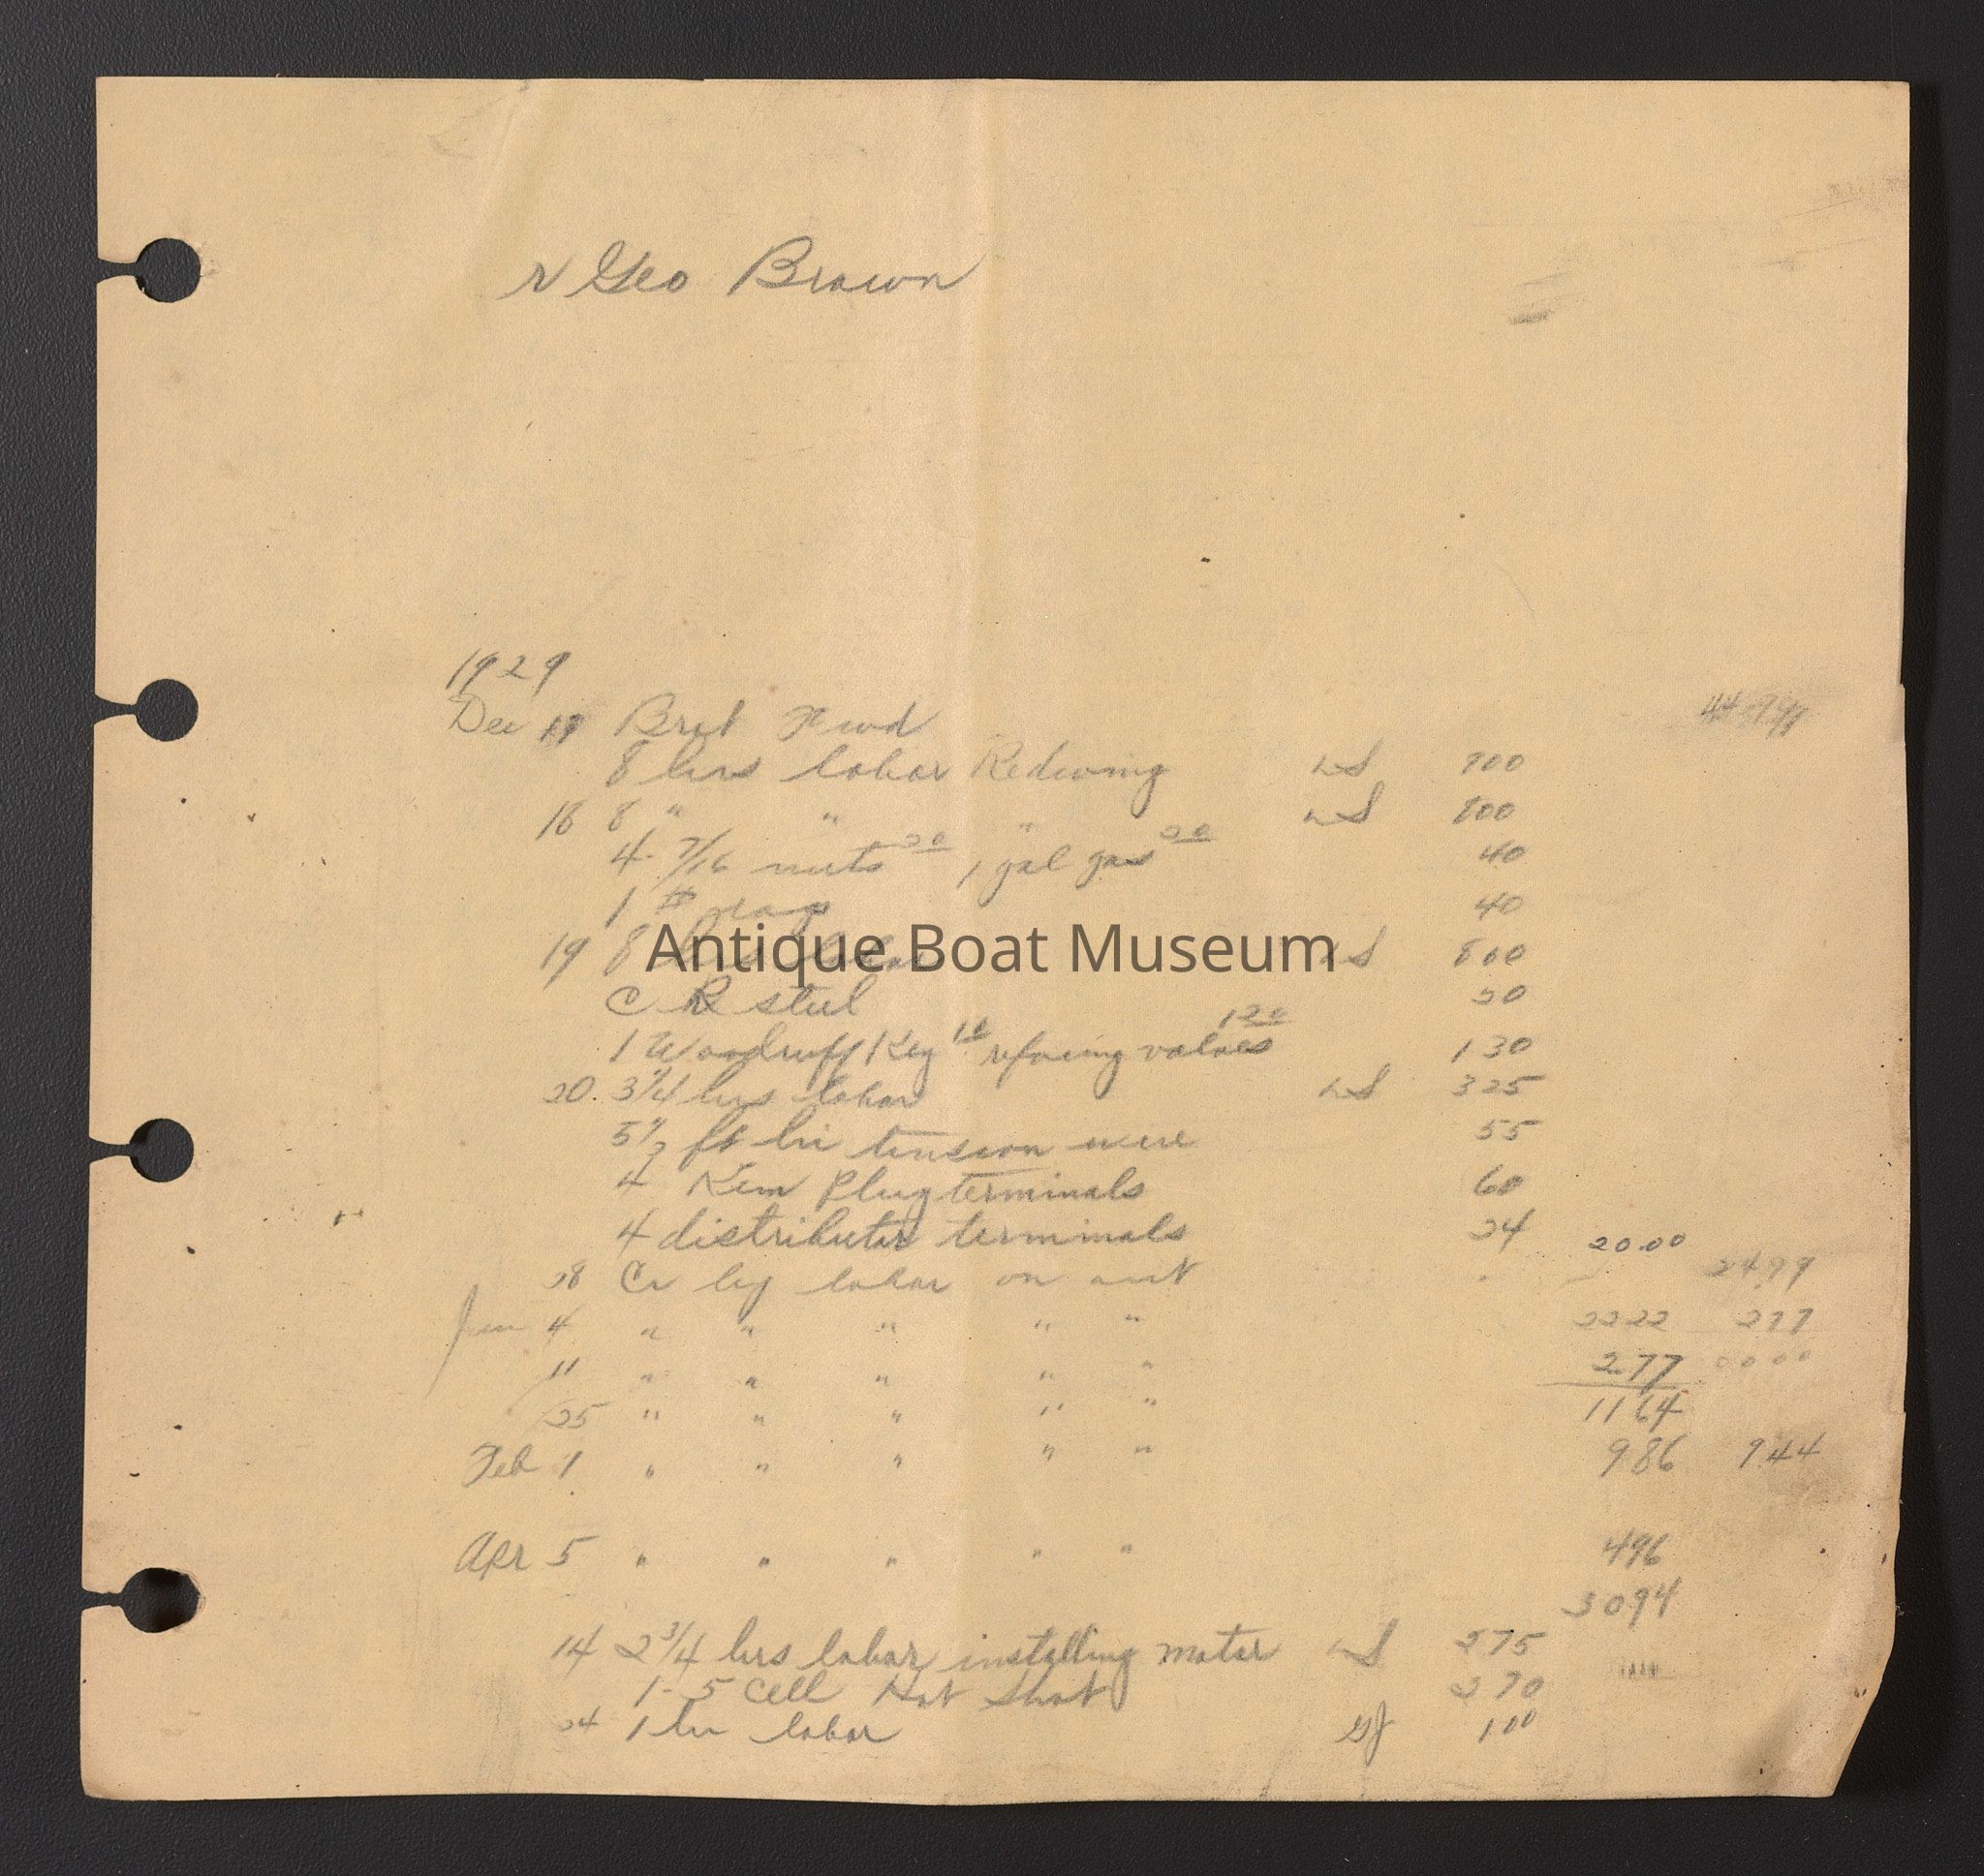 Geo Brown
1929
Dec 17 Brot Fwd 44 79
8 hrs labor LS 700
18 8 " " " LS 800
4 7/16 nuts 20 1 gal gas 20 40
1 # rags 40
19 8 hrs labor LS 800
C R steel 50
1 Woodruff Key 10 refacing valves 120 130
20. 3 1/4 hrs labor LS 325
5 1/2 ft hi tension wire 55
4 Rem Plug terminals 60
4 distributor terminals 24 20.00
28 Cr by labor on acct 2499
Jan 4 " " " " " 2222 277
11 " " " " " 277 0000
25 " " " " " 1164
Feb 1 " " " " " 986 944
Apr 5 " " " " " 496
3094
14 2 3/4 hrs labor installing motor LS 275
1 - 5 Cell Hot Shot 270
24 1 hr labor 100
Antique Boat Museum